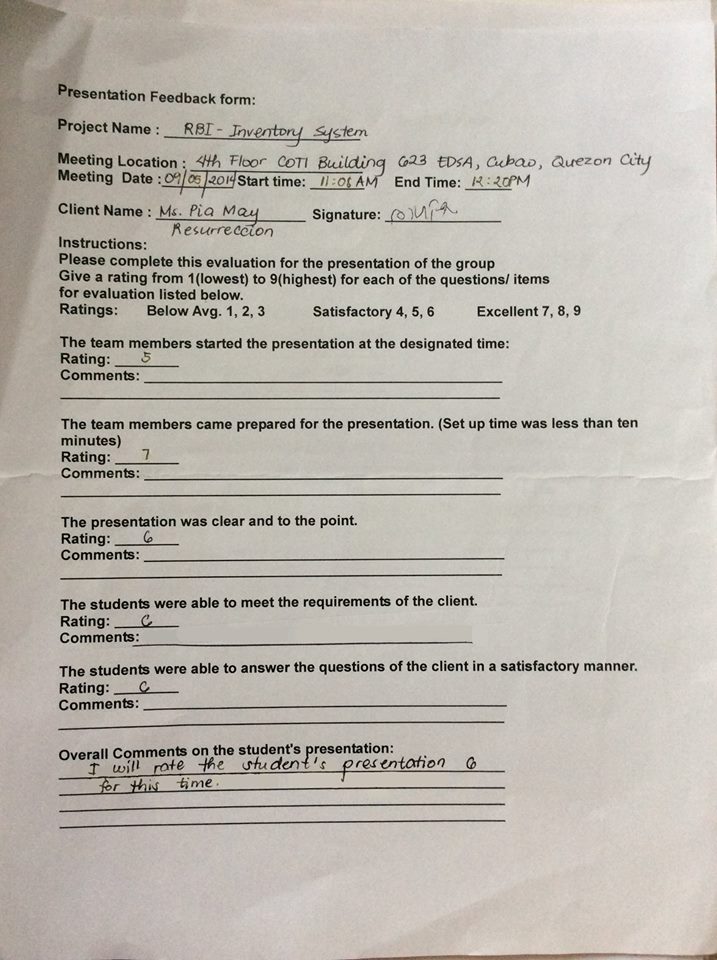 Presentation Feedback form:
Project Name : RBI - Inventory System
Meeting Location : 4th Floor COTI Building 623 EDSA, Cubao, Quezon City
Meeting Date : 09/05/2014 Start time: 11:08 AM End Time: 12:20PM
Client Name : Ms. Pia May Signature:
Resurreccion
Instructions:
Please complete this evaluation for the presentation of the group
Give a rating from 1(lowest) to 9(highest) for each of the questions/ items
for evaluation listed below.
Ratings: Below Avg. 1, 2, 3 Satisfactory 4, 5, 6 Excellent 7, 8, 9
The team members started the presentation at the designated time:
Rating: 5
Comments:
The team members came prepared for the presentation. (Set up time was less than ten
minutes)
Rating: 7
Comments:
The presentation was clear and to the point.
Rating: 6
Comments:
The students were able to meet the requirements of the client.
Rating: 6
Comments:
The students were able to answer the questions of the client in a satisfactory manner.
Rating: 6
Comments:
Overall Comments on the student's presentation:
I will rate the student's presentation 6
for this time.